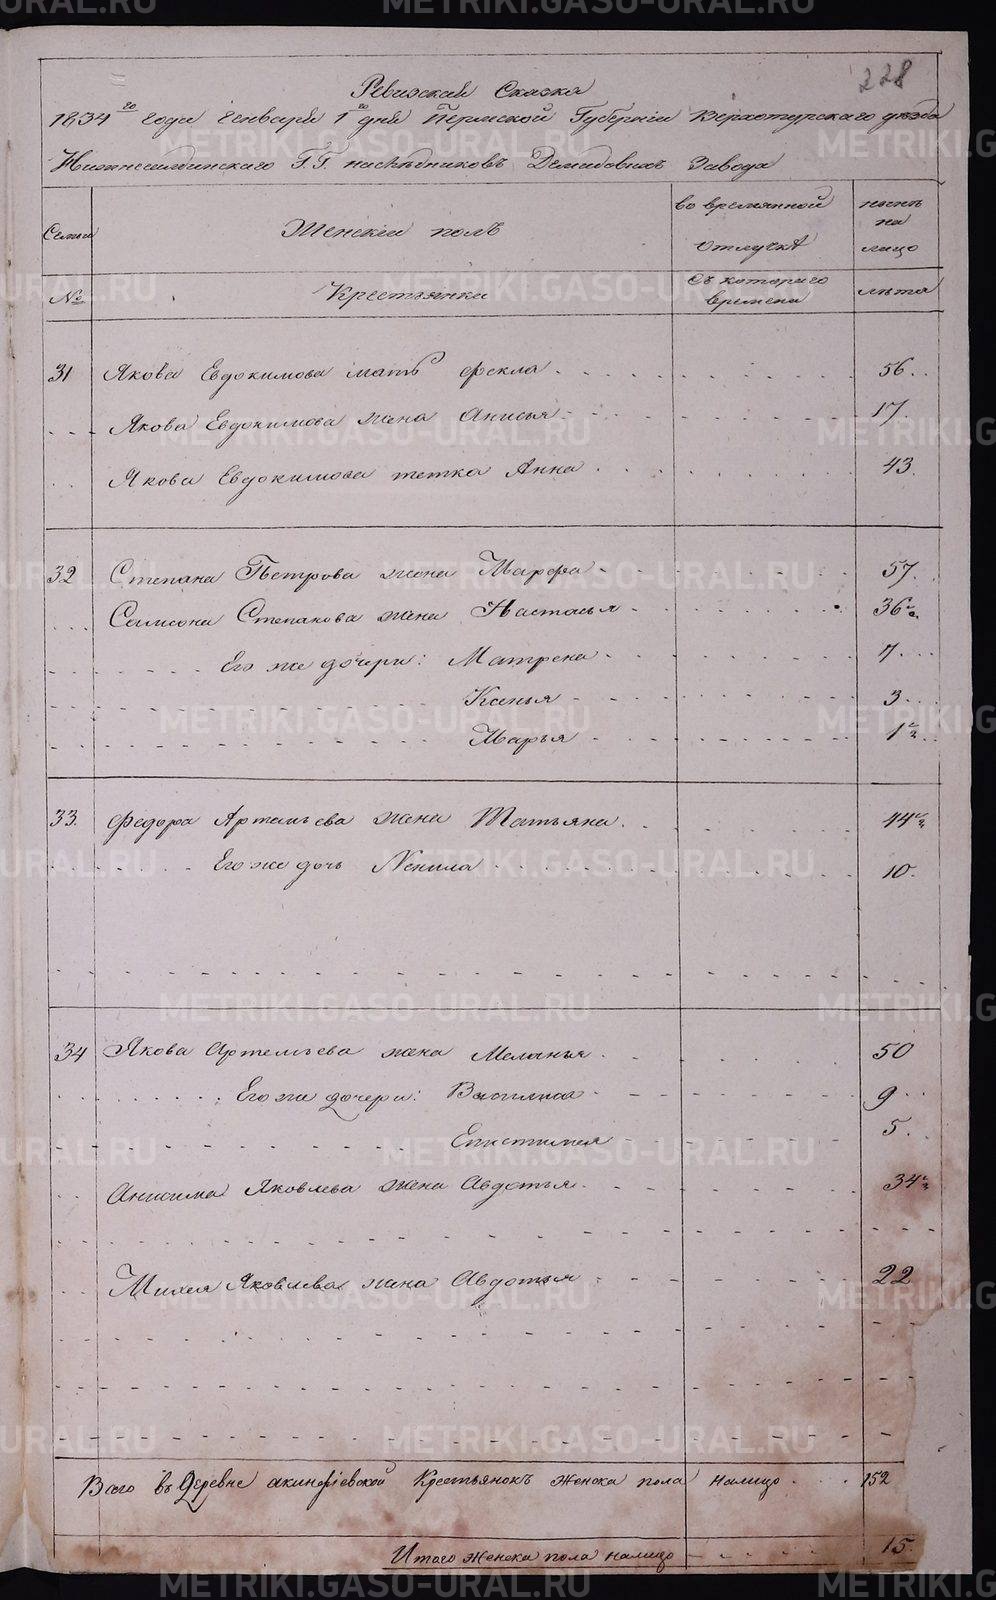 228
Ревизская Сказка
1834го года Генваря 1го дня Пермской Губернiи Верхотурскаго уезда
Нижнесалдинскаго Г.Г наследниковъ Демидовыхъ Завода
Семьи Женскiй полъ во временной отлучке ныне на лицо
№ Крестьянки съ котораго времени лета
31 Якова Евдокимова мать Фекла 56
Якова Евдокимова жена Анисья 17.
Якова Евдокимова тетка Анна 43.
32 Степана Петрова жена Марфа 57.
Самсона Степанова жена Настасья 36
Его же дочери: Матрена 7
Ксенья 3
Марья 1
33. Федора Артемьева жена Татьяна 44
Его же дочь Ненила 10.
34 Якова Артемьева жена Меланья 50
Его же дочери: Василиса 9
Епистимея 5.
Анисима Яковлева жена Авдотья 34
Михея Яковлева жена Авдотья 22
Всего въ Деревне акинфiевской Крестьянокъ женска пола налицо 152
Итого женска пола налицо 15.
METRIKI.GASO-URAL.RU